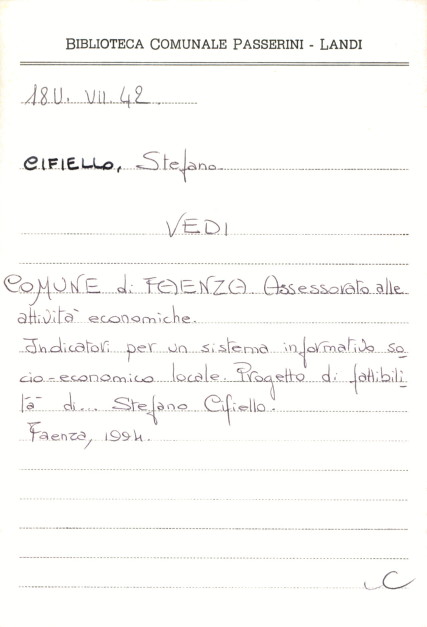 BIBLIOTECA COMUNALE PASSERINI - LANDI
18U. VII. 42
CIFIELLO, Stefano
VEDI
COMUNE di FAENZA. Assessorato alle
attività economiche.
Indicatori per un sistema informativo so
cio-economico locale. Progetto di fattibili
tà di... Stefano Cifiello.
Faenza, 1994.